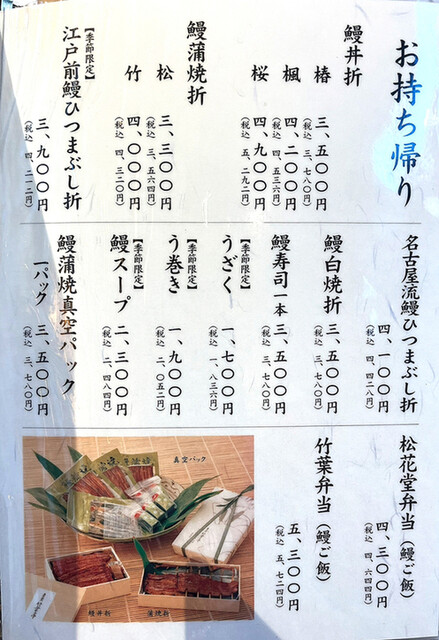 お持ち帰り
鰻丼折
椿 三、五〇〇円
(税込 三、七八〇円)
楓 四、二〇〇円
(税込 四、五三六円)
桜 四、九〇〇円
(税込 五、二九二円)
鰻蒲焼折
松 三、三〇〇円
(税込 三、五六四円)
竹 四、〇〇〇円
(税込 四、三二〇円)
【季節限定】
江戸前鰻ひつまぶし折
三、九〇〇円
(税込 四、二一二円)
名古屋流鰻ひつまぶし折
四、一〇〇円
(税込 四、四二八円)
鰻白焼折
三、五〇〇円
(税込 三、七八〇円)
鰻寿司一本
三、五〇〇円
(税込 三、七八〇円)
【季節限定】
うざく
一、七〇〇円
(税込 一、八三六円)
【季節限定】
う巻き
一、九〇〇円
(税込 二、〇五二円)
【季節限定】
鰻スープ
二、三〇〇円
(税込 二、四八四円)
鰻蒲焼真空パック
一パック 三、五〇〇円
(税込 三、七八〇円)
松花堂弁当(鰻ご飯)
四、三〇〇円
(税込 四、六四四円)
竹葉弁当(鰻ご飯)
五、三〇〇円
(税込 五、七二四円)
真空パック
鰻丼折
蒲焼折